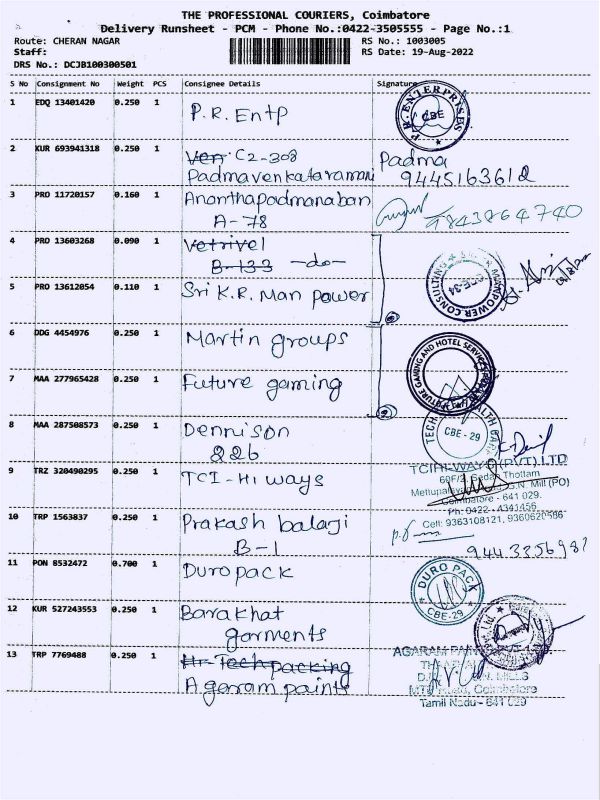 THE PROFESSIONAL COURIERS, Coimbatore
Delivery Runsheet - PCM - Phone No.:0422-3505555 - Page No.:1
Route: CHERAN NAGAR RS No.: 1003005
Staff: RS Date: 19-Aug-2022
DRS No.: DCJB100300501
S No Consignment No Weight PCS Consignee Details Signature
1 EDQ 13401420 0.250 1 P.R. Entp P.R. ENTERPRISES CBE
2 KUR 693941318 0.250 1 Ven C2-308 Padma
Padmavenkataraman 9445163612
3 PRO 11720157 0.160 1 Ananthapadmanaban
A-78 9843864740
4 PRO 13603268 0.090 1 Vetrivel
B-133 -do-
5 PRO 13612054 0.110 1 Sri K.R. Man power MANPOWER CONSULTING CBE-34
6 DDG 4454976 0.250 1 Martin groups
7 MAA 277965428 0.250 1 Future gaming FUTURE GAMING AND HOTEL SERVICES
8 MAA 287508573 0.250 1 Dennison TECH HEALTH CARE CBE - 29
226
9 TRZ 320490295 0.250 1 TCI-Hi ways TCIHI-WAYS (PVT) LTD
Thottam
Mettupalayam G.N. Mill (PO)
Coimbatore - 641 029.
Ph: 0422 - 4341456
Cell: 9363108121, 9360620586
10 TRP 1563837 0.250 1 Prakash balaji
B-1
11 PON 8532472 0.700 1 Duropack DURO PACK CBE-29
12 KUR 527243553 0.250 1 Barakhat
garments
13 TRP 7769488 0.250 1 Hr Techpacking AGARAM PAINTS PVT. LTD.
Agaram paints
MTP Road, Coimbatore
Tamil Nadu - 641 029